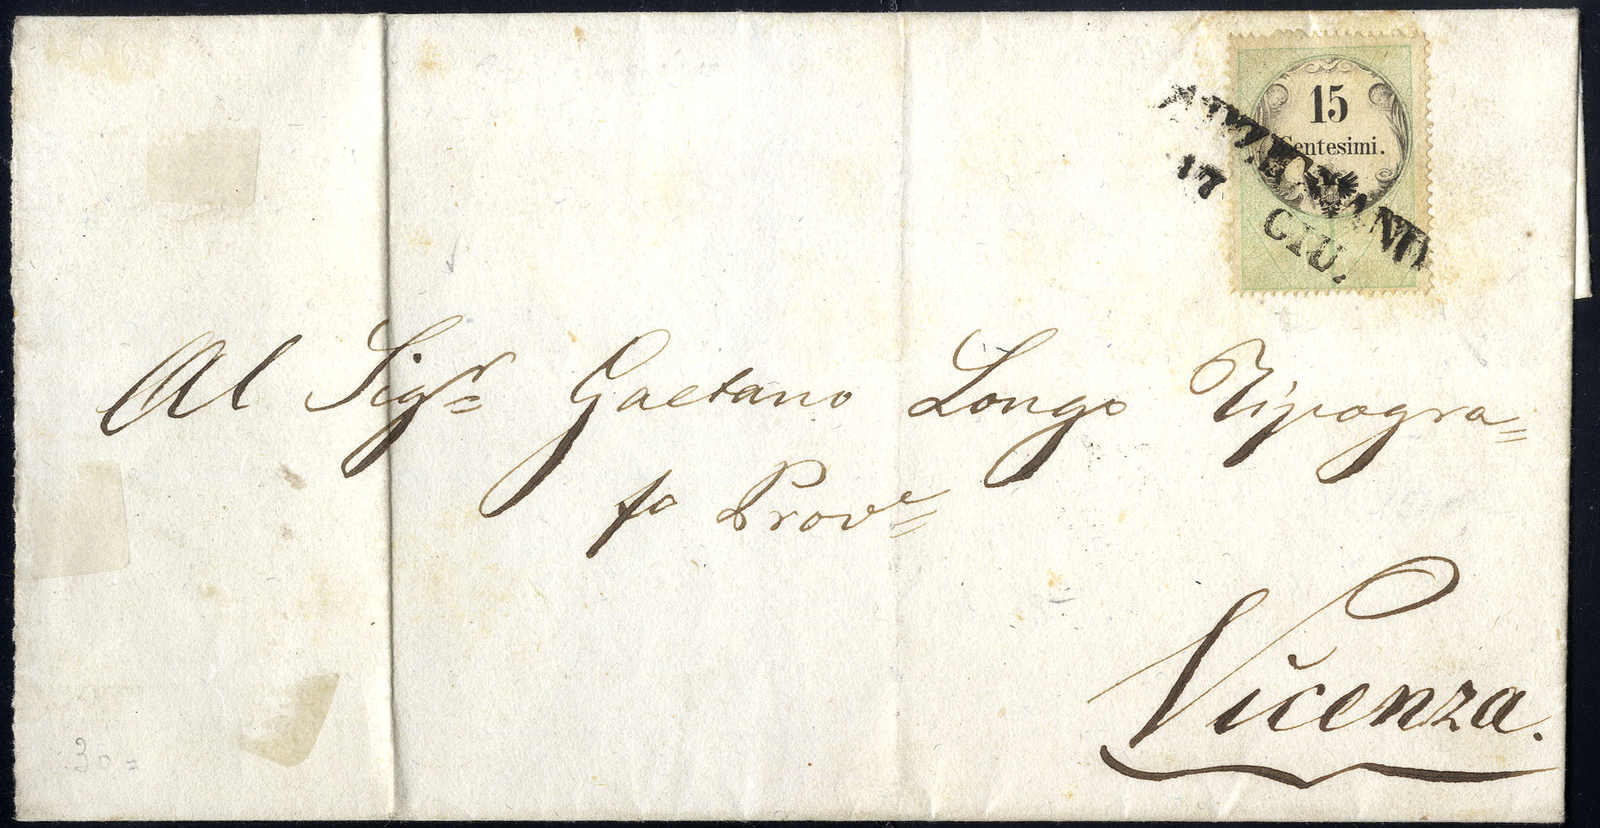 15
Centesimi.
ARZIGNANO
17 GIU.
Al Sigr= Gaetano Longo Tipogra=
fo Prove=
Vicenza.
30=